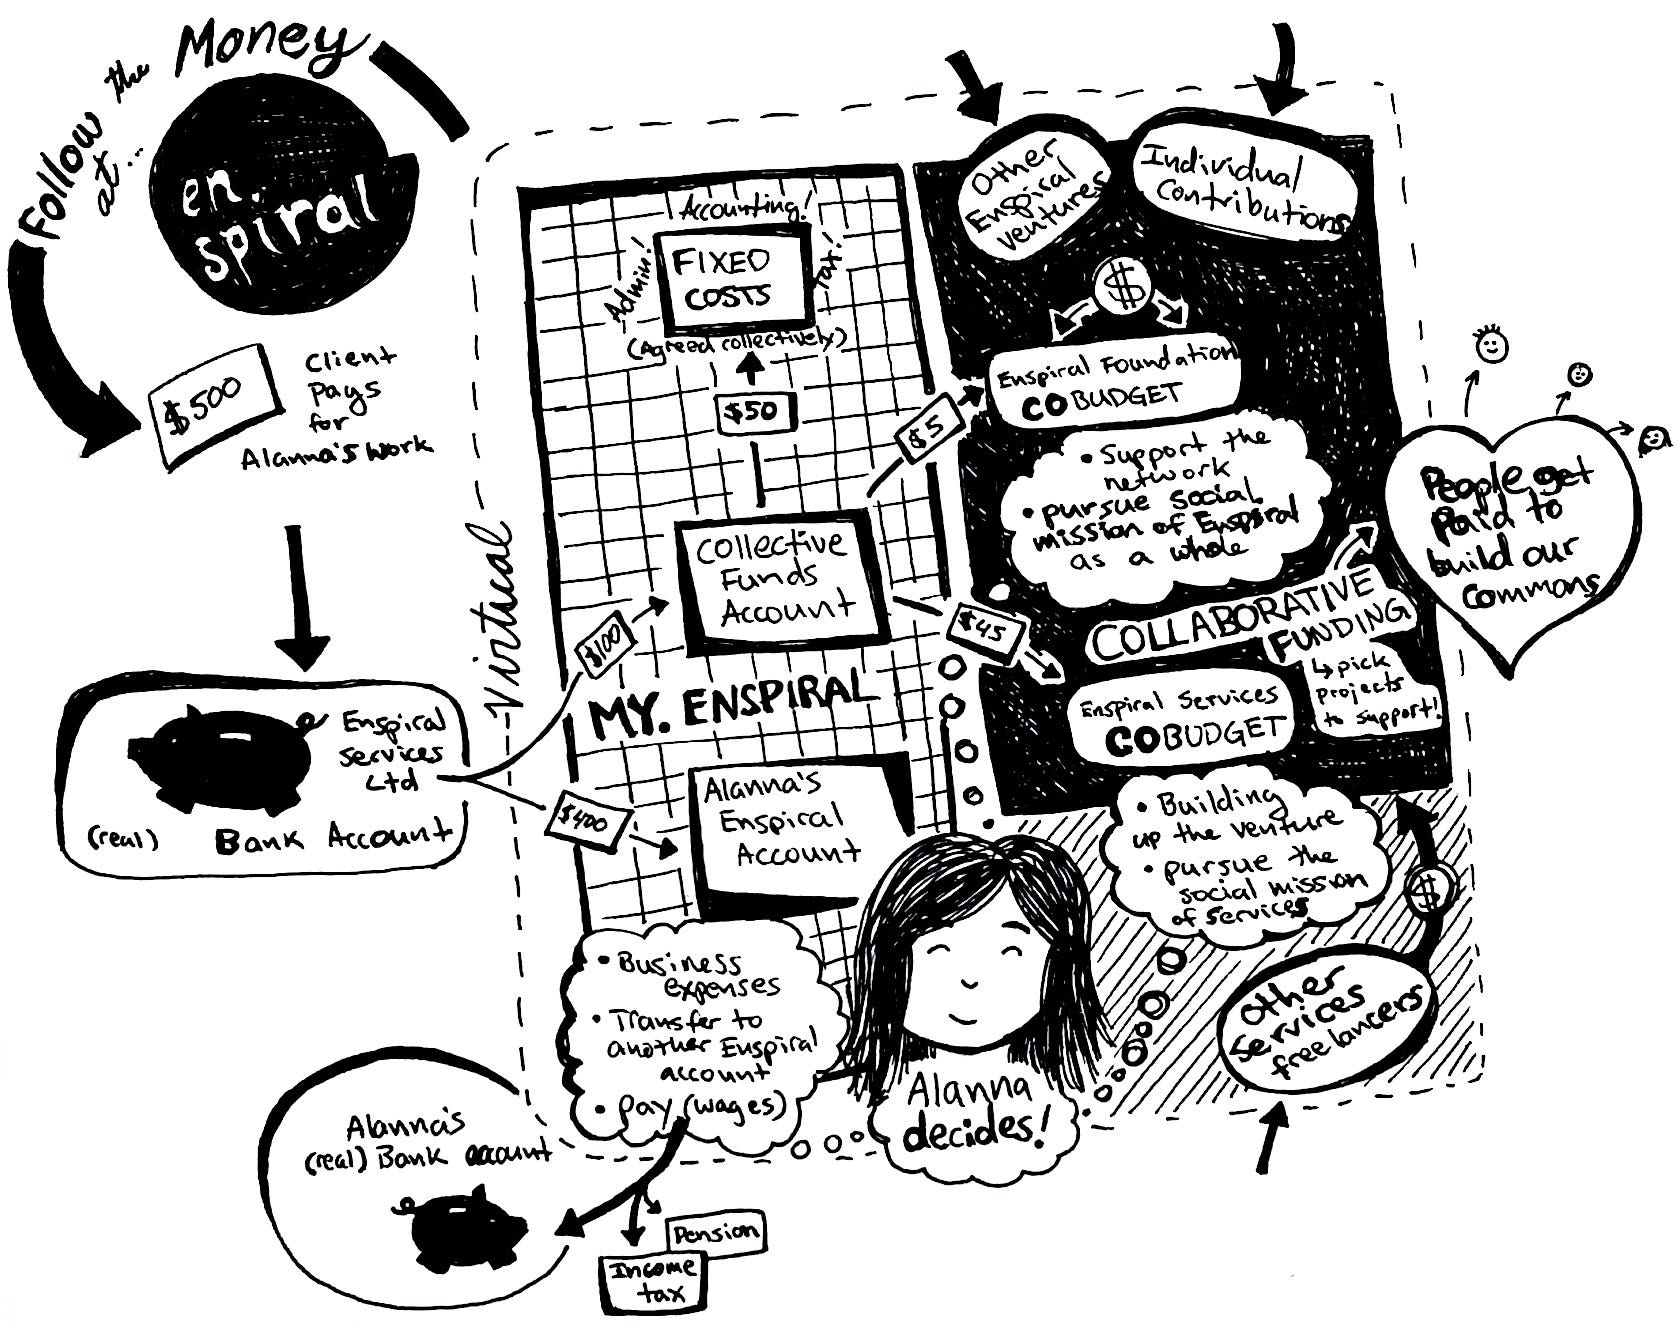 Follow the Money
at...
en.
spiral
$500
Client
Pays
for
Alanna's Work
Enspiral
Services
Ltd
(real) Bank Account
Virtual
$100
$400
Accounting!
Admin!
Tax!
FIXED
COSTS
(Agreed collectively)
$50
Collective
Funds
Account
$5
$45
MY. ENSPIRAL
Alanna's
Enspiral
Account
• Business
expenses
• Transfer to
another Enspiral
account
• pay (wages)
Alanna's
(real) Bank account
Pension
Income
tax
Alanna
decides!
Other
Enspiral
ventures
Individual
Contributions
$
Enspiral Foundation
COBUDGET
• Support the
network
• pursue social
mission of Enspiral
as a whole
COLLABORATIVE
FUNDING
↳ pick
projects
to support!
Enspiral Services
COBUDGET
• Building
up the venture
• pursue the
social mission
of services
$
Other
Services
freelancers
People get
Paid to
build our
Commons